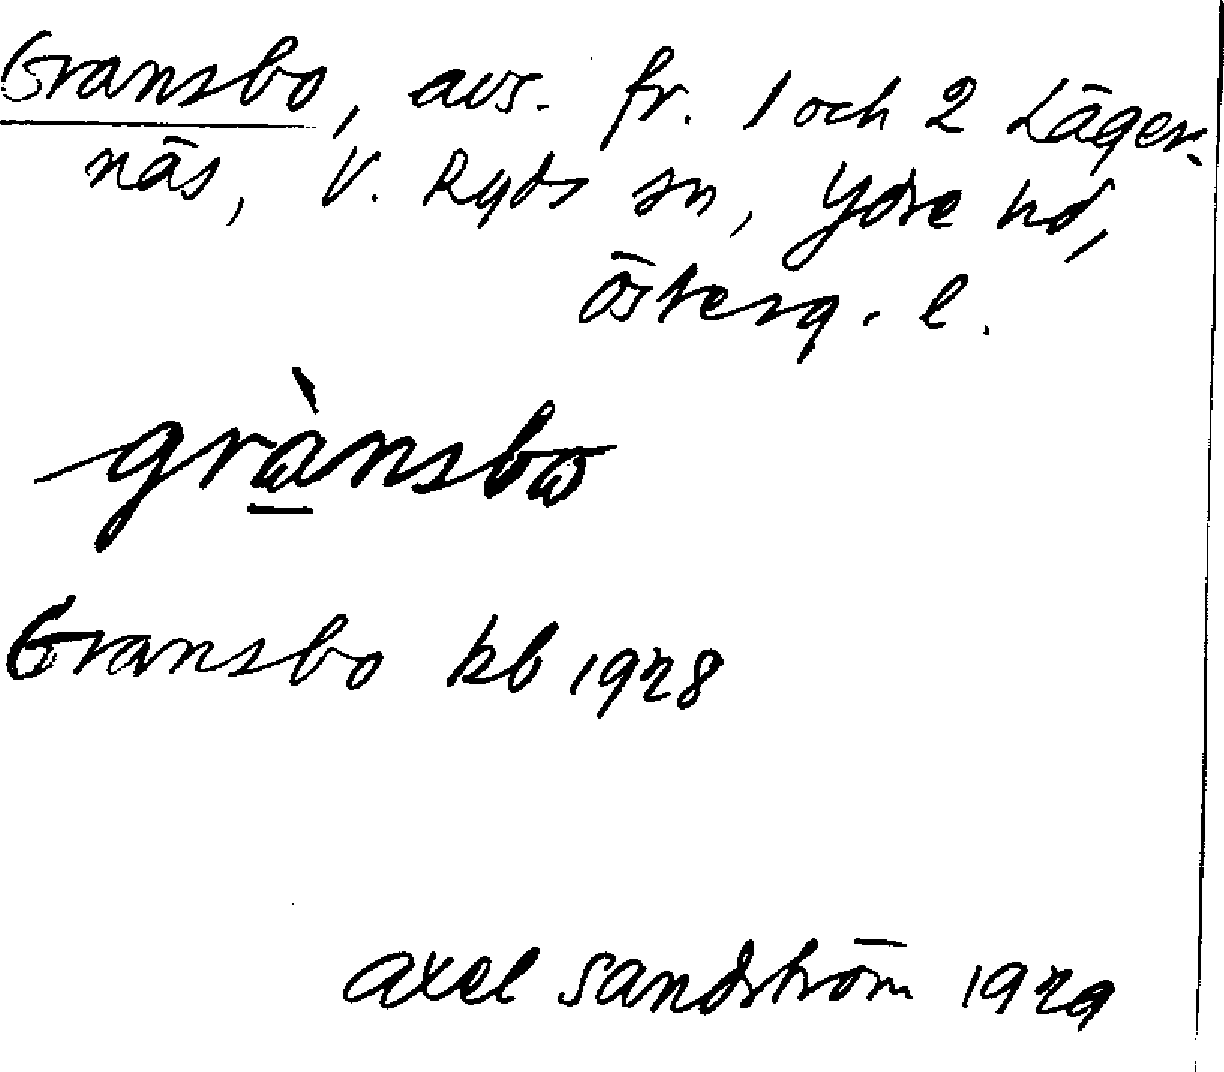 Gransbo, avs. fr. 1 och 2 Läger-
näs, V. Ryds sn, Ydre hd,
Österg. l.
grànsbω
Gransbo kb 1928
Axel Sandström 1929